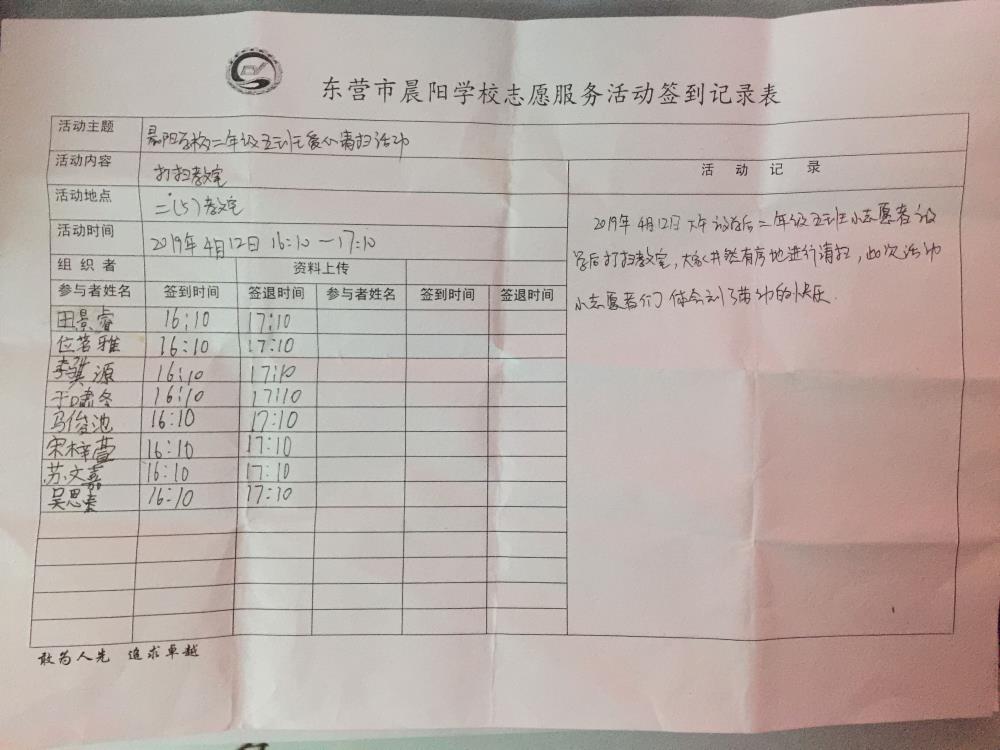 东营市晨阳学校志愿服务活动签到记录表
活动主题 晨阳学校二年级五班爱心清扫活动
活动内容 打扫教室
活动记录
活动地点 二(5)教室
活动时间 2019年4月12日 16:10—17:10
组织者 资料上传
参与者姓名 签到时间 签退时间 参与者姓名 签到时间 签退时间
田景睿 16:10 17:10
位茗雅 16:10 17:10
李骐源 16:10 17:10
于啸冬 16:10 17:10
马俊池 16:10 17:10
宋梓萱 16:10 17:10
苏文嘉 16:10 17:10
吴思 16:10 17:10
2019年4月12日下午放学后二年级五班小志愿者放
学后打扫教室,大家井然有序地进行清扫,此次活动
小志愿者们体会到了劳动的快乐.
敢为人先 追求卓越